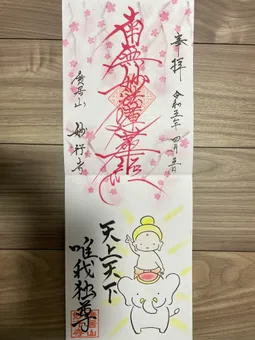 奉拝
令和五年 四月五日
南無妙法蓮華経
妙行寺
天上天下
唯我独尊